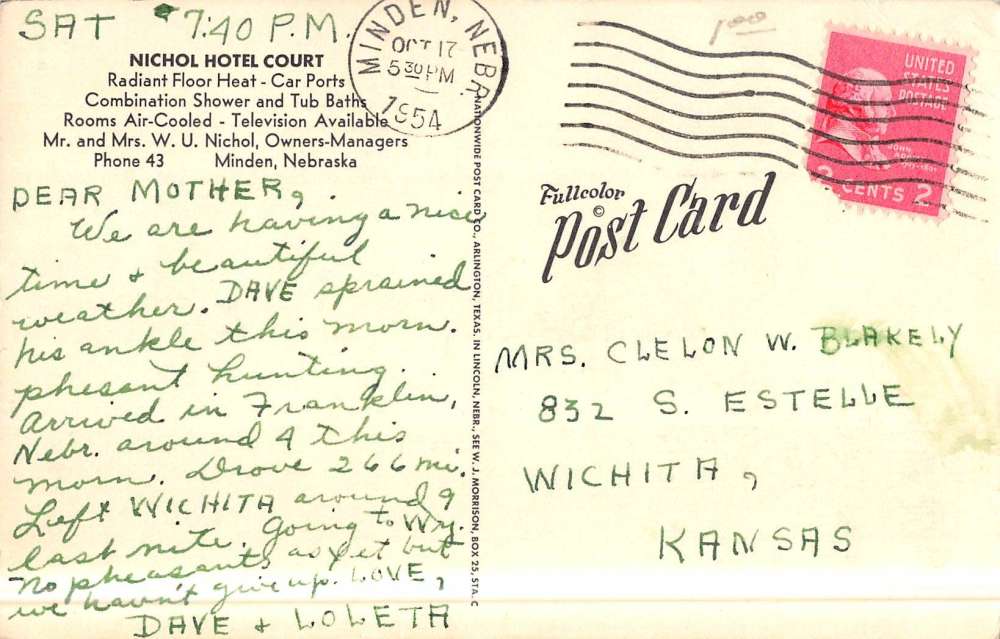 SAT 7:40 P.M.
NICHOL HOTEL COURT
Radiant Floor Heat - Car Ports
Combination Shower and Tub Baths
Rooms Air-Cooled - Television Available
Mr. and Mrs. W. U. Nichol, Owners-Managers
Phone 43 Minden, Nebraska
DEAR MOTHER,
We are having a nice
time & beautiful
weather. DAVE sprained
his ankle this morn.
phesant hunting.
Arrived in Franklin,
Nebr. around 4 this
morn. Drove 266 mi.
Left WICHITA around 9
last nite. Going to Wy.
No pheasants as yet but
we havn't give up. LOVE,
DAVE & LOLETA
MINDEN, NEBR.
OCT 17
5 30 PM
1954
NATIONWIDE POST CARD CO., ARLINGTON, TEXAS. IN LINCOLN, NEBR., SEE W. J. MORRISON, BOX 25, STA. C
1.00
UNITED
STATES
POSTAGE
JOHN
2 CENTS 2
Fullcolor
©
Post Card
MRS. CLELON W. BLAKELY
832 S. ESTELLE
WICHITA,
KANSAS